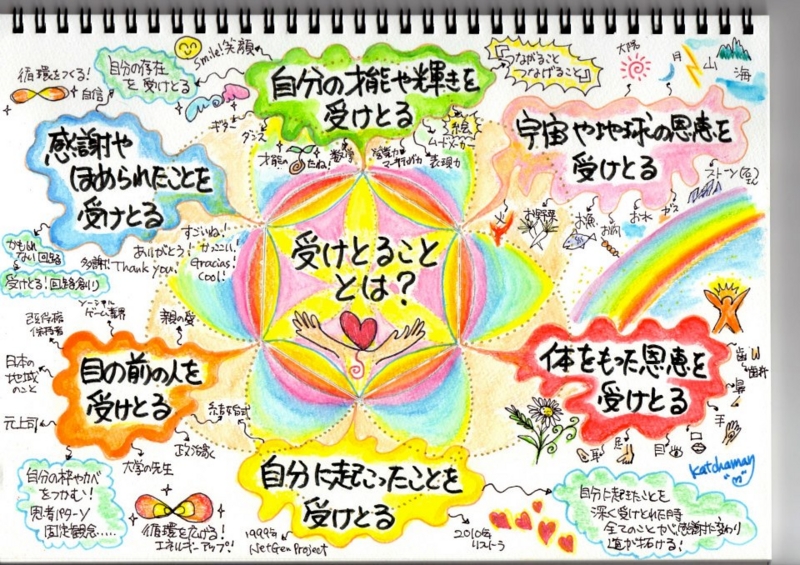 受けとること
とは?
自分の才能や輝きを
受けとる
smile!笑顔
つながること
つなげること
太陽
月
山
海
宇宙や地球の恩恵を
受けとる
ストーン(石)
さん
ガス
お水
お肉
お魚
お野菜
体をもった恩恵を
受けとる
歯
歯科
鼻
手
口
目
足
耳
Katchaman
自分に起きたことを
深く受けとれた時
全てのことが感謝に変わり
道が拓ける!
自分に起こったことを
受けとる
1999年
NetGen Project
2010年
リストラ
目の前の人を
受けとる
親の愛
ソーシャル
ゲーム業界
日本の
地域
のこと
元上司
結婚式
政治家
大学の先生
自分の枠やカベ
をつかむ!
思考パターン
固定観念.....
循環を広げる!
エネルギーアップ!
感謝や
ほめられたことを
受けとる
すごいね!
ありがとう!
かっこいい!
多謝!
Thank you!
Gracias!
Cool!
かもしれ
ない回路
受けとる!回路創り
循環をつくる!
自信
自分の存在
を受けとる
ギター
ダンス
才能の
たね!
数学
営業力
マーケティング力
表現力
ムードメーカー
絵